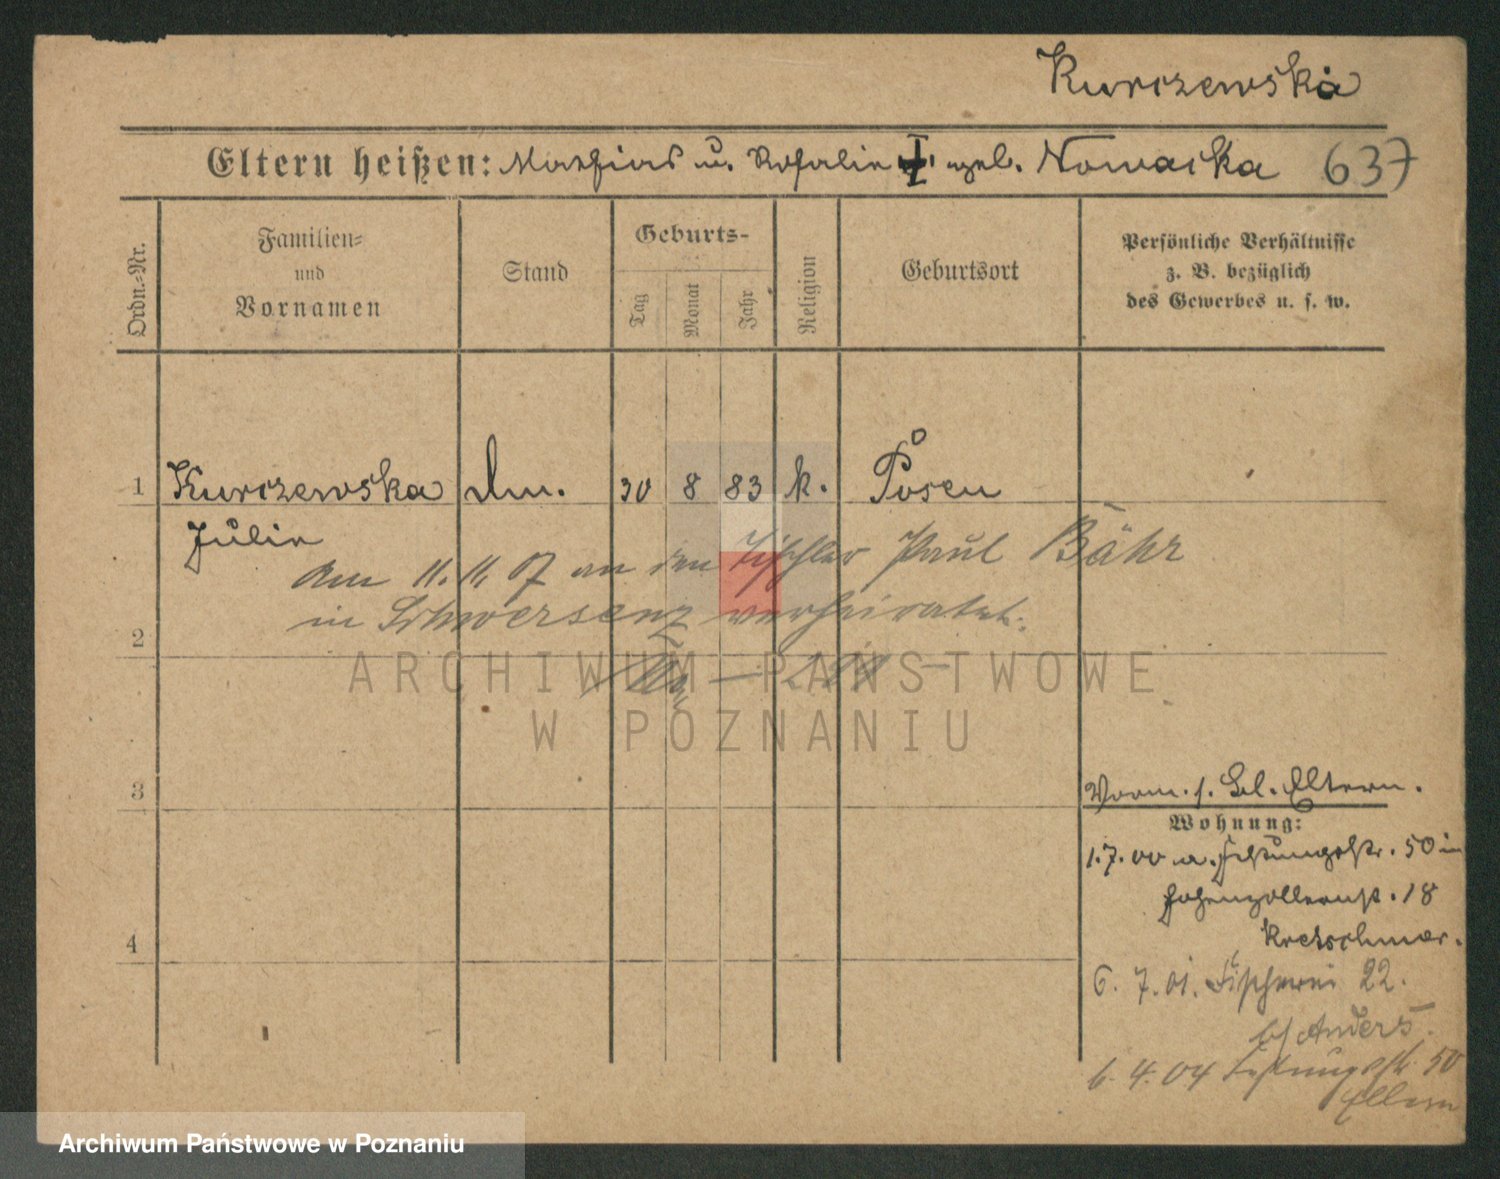 Kurczewska
Eltern heißen: Mathias u. Rosalie geb. Nowacka 637
Ordn.-Nr.
Familien-
und
Vornamen
Stand
Geburts-
Tag
Monat
Jahr
Religion
Geburtsort
Persönliche Verhältnisse
z. B. bezüglich
des Gewerbes u. s. w.
1 Kurczewska 30 8 83 k. Posen
Julie
Am 11. 11. 07 an den Tischler Paul Bähr
in Schwersenz verheiratet.
2
3
Eltern.
Wohnung:
1.7.00 a. Festungsstr. 50 in
Hohenzollernst. 18
Kretschmer.
6. 7. 01. Fischerei 22.
b/ Anders.
6. 4. 04 Festungsstr. 50
Eltern
4
ARCHIWUM PAŃSTWOWE
W POZNANIU
Archiwum Państwowe w Poznaniu